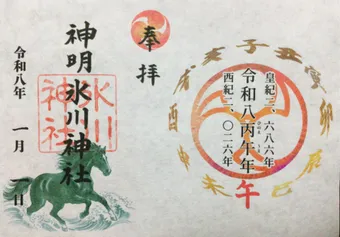 子
丑
寅
卯
辰
巳
午
未
申
酉
戌
亥
皇紀二、六八六年
令和八丙午年
西紀二、〇二六年
奉拝
神明氷川神社
氷川
神社
令和八年 一月 一日